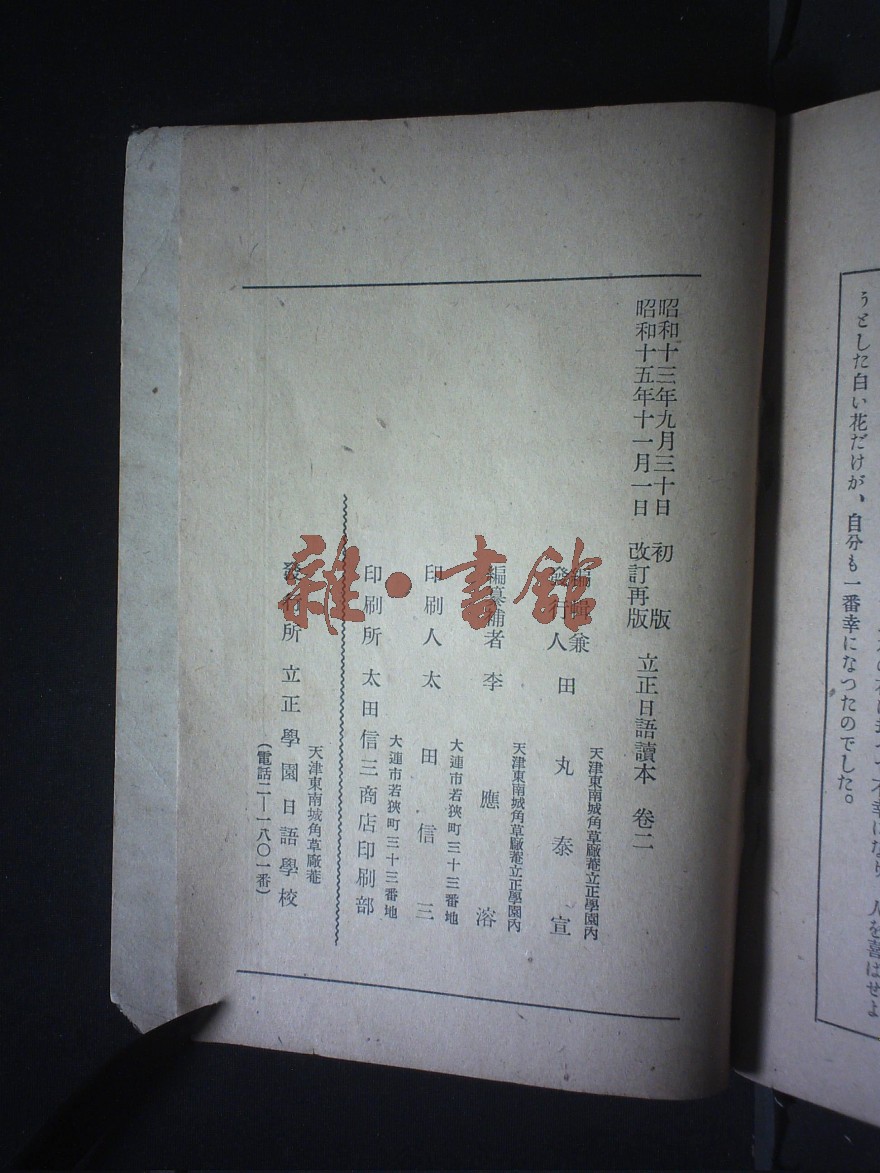 うとした白い花だけが、自分も一番幸になつたのでした。
昭和十三年九月三十日　初版
昭和十五年十一月一日　改訂再版
立正日語讀本　卷二
天津東南城角草廠菴立正學園內
編輯兼發行人　田丸泰宣
天津東南城角草廠菴立正學園內
編纂補者　李應溶
大連市若狹町三十三番地
印刷人　太田信三
大連市若狹町三十三番地
印刷所　太田信三商店印刷部
天津東南城角草廠菴
發行所　立正學園日語學校
（電話二—一八〇一番）
雜·書館